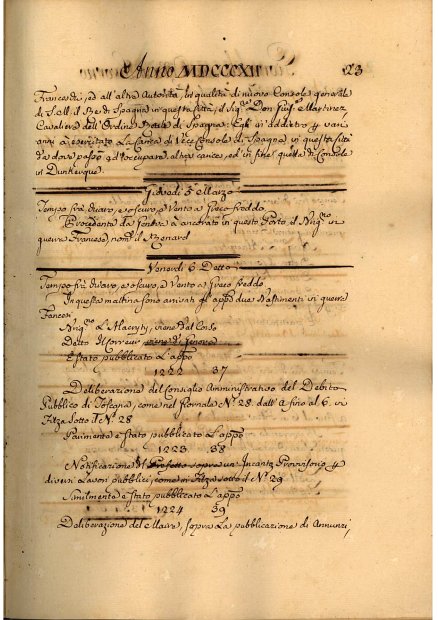 Anno MDCCCXII 23
Francesi, ed all'altre Autorità, in qualità di nuovo Console generale
di S. M. il Re di Spagna in questa Città, il Sig.re Don Martinez
Cavaliere dell'Ordine Reale di Spagna: Egli in addietro p. varj
anni à esercitato la Carica di Vice Console di Spagna in questa Città
da dove passò ad occupare altre cariche, ed in fine quella di Console
in Dunkerque.
Giovedì 5 Marzo
Tempo frà chiaro, e oscuro, e Vento a Greco freddo.
Procedente da à ancorato in questo Porto il Brig.no di
guerra Francese, nom.to il Renard
Venerdì 6 Detto
Tempo frà chiaro, e oscuro, e Vento a Greco freddo
In questa mattina sono arrivati gl'app.o due Bastimenti di guerra
Francesi
Brig.no L'Macryty, viene dal Corso
Detto il Corriere, viene di Genova
È stato pubblicato L'app.o
1222 37
Deliberazione del Consiglio Amministrativo del Debito
Pubblico di Toscana, come nel Giornale N.o 28. dall' a fino al 6. in
Filza Sotto il N.o 28
Parimente è stato pubblicato L'app.o
1223 38
Notificazione del Prefetto sopra un Incanto Provvisorio p.
diversi Lavori pubblici, come in Filza sotto il N.o 29
Similmente è stato pubblicato L'app.o
1224 39
Deliberazione del Maire, sopra la pubblicazione di Annunzi,